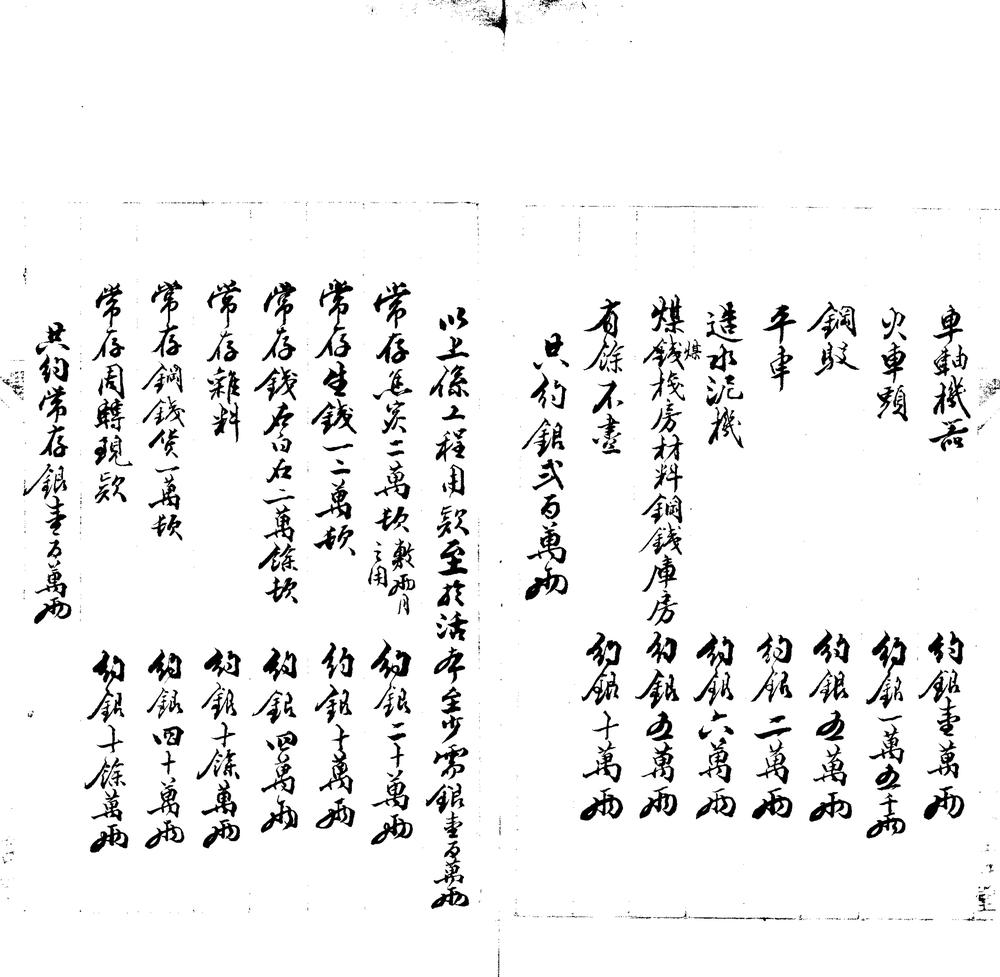 車軸機器 約銀壹萬兩
火車頭 約銀一萬五千兩
鋼駁 約銀五萬兩
平車 約銀二萬兩
造水泥機 約銀六萬兩
煤鐵棧房材料鋼鐵庫房 約銀五萬兩
煤
有餘不盡 約銀十萬兩
共約銀弍百萬兩
以上係工程用款至於活本至少需銀壹百萬兩
常存焦炭二萬噸敷兩月之用 約銀二十萬兩
常存生鐵一二萬噸 約銀十萬兩
常存鐵石白石二萬餘噸 約銀四萬兩
常存雜料 約銀十餘萬兩
常存鋼鐵貨一萬噸 約銀四十萬兩
常存周轉現款 約銀十餘萬兩
共約常存銀壹百萬兩